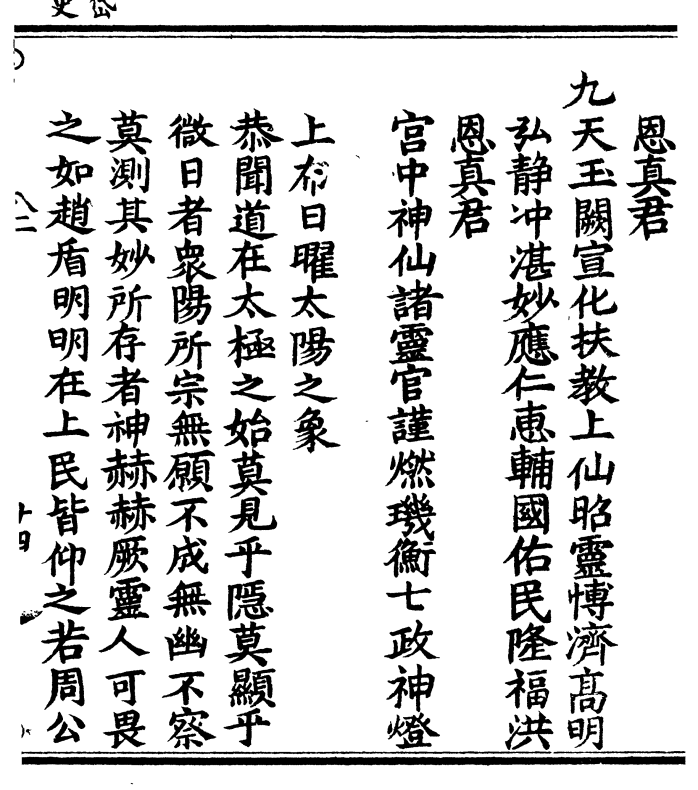 恩真君
九天玉闕宣化扶教上仙昭靈博濟高明
弘静冲湛妙應仁惠輔國佑民隆福洪
恩真君
宮中神仙諸靈官謹燃璣衡七政神燈
上布日曜太陽之象
恭聞道在太極之始莫見乎隱莫顯乎
微日者衆陽所宗無願不成無幽不察
莫測其妙所存者神赫赫厥靈人可畏
之如趙盾明明在上民皆仰之若周公